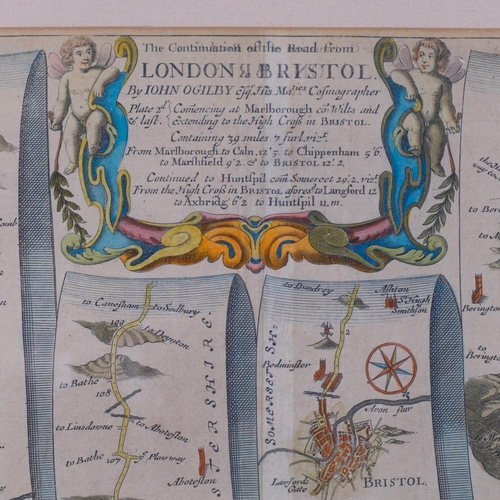 The Continuation of the Road from
LONDON to BRISTOL.
By IOHN OGILBY Esqr. His Maties Cosmographer
Plate 2d. Comencing at Marlborough co: Wilts and
& last. Extending to the High Cross in BRISTOL.
Containing 39 miles 7 furl. vizt.
From Marlborough to Caln, 12'5. to Chippenham 5'6.
to Marshfield 9'2. & to BRISTOL 12'2.
Continued to Huntspil com Somerset 29'2. vizt.
From the High Cross in BRISTOL afores.d to Langford 12
to Axbridg 6'2 to Huntspil 11,m.
to Canesham
to Sodbury
109
to Deynton
to Bathe
108
to Linsdowne
to Aboteston
to Bathe
107
ye Plow way
Aboteston
TERSHIRE
to Dundrey
Ashton
Sr. Hugh
Smithson
2
Bedminster
SOMERSET SH:
Avon fluv
Lawfords
Gate
BRISTOL.
to Be
Berington
to
Berin